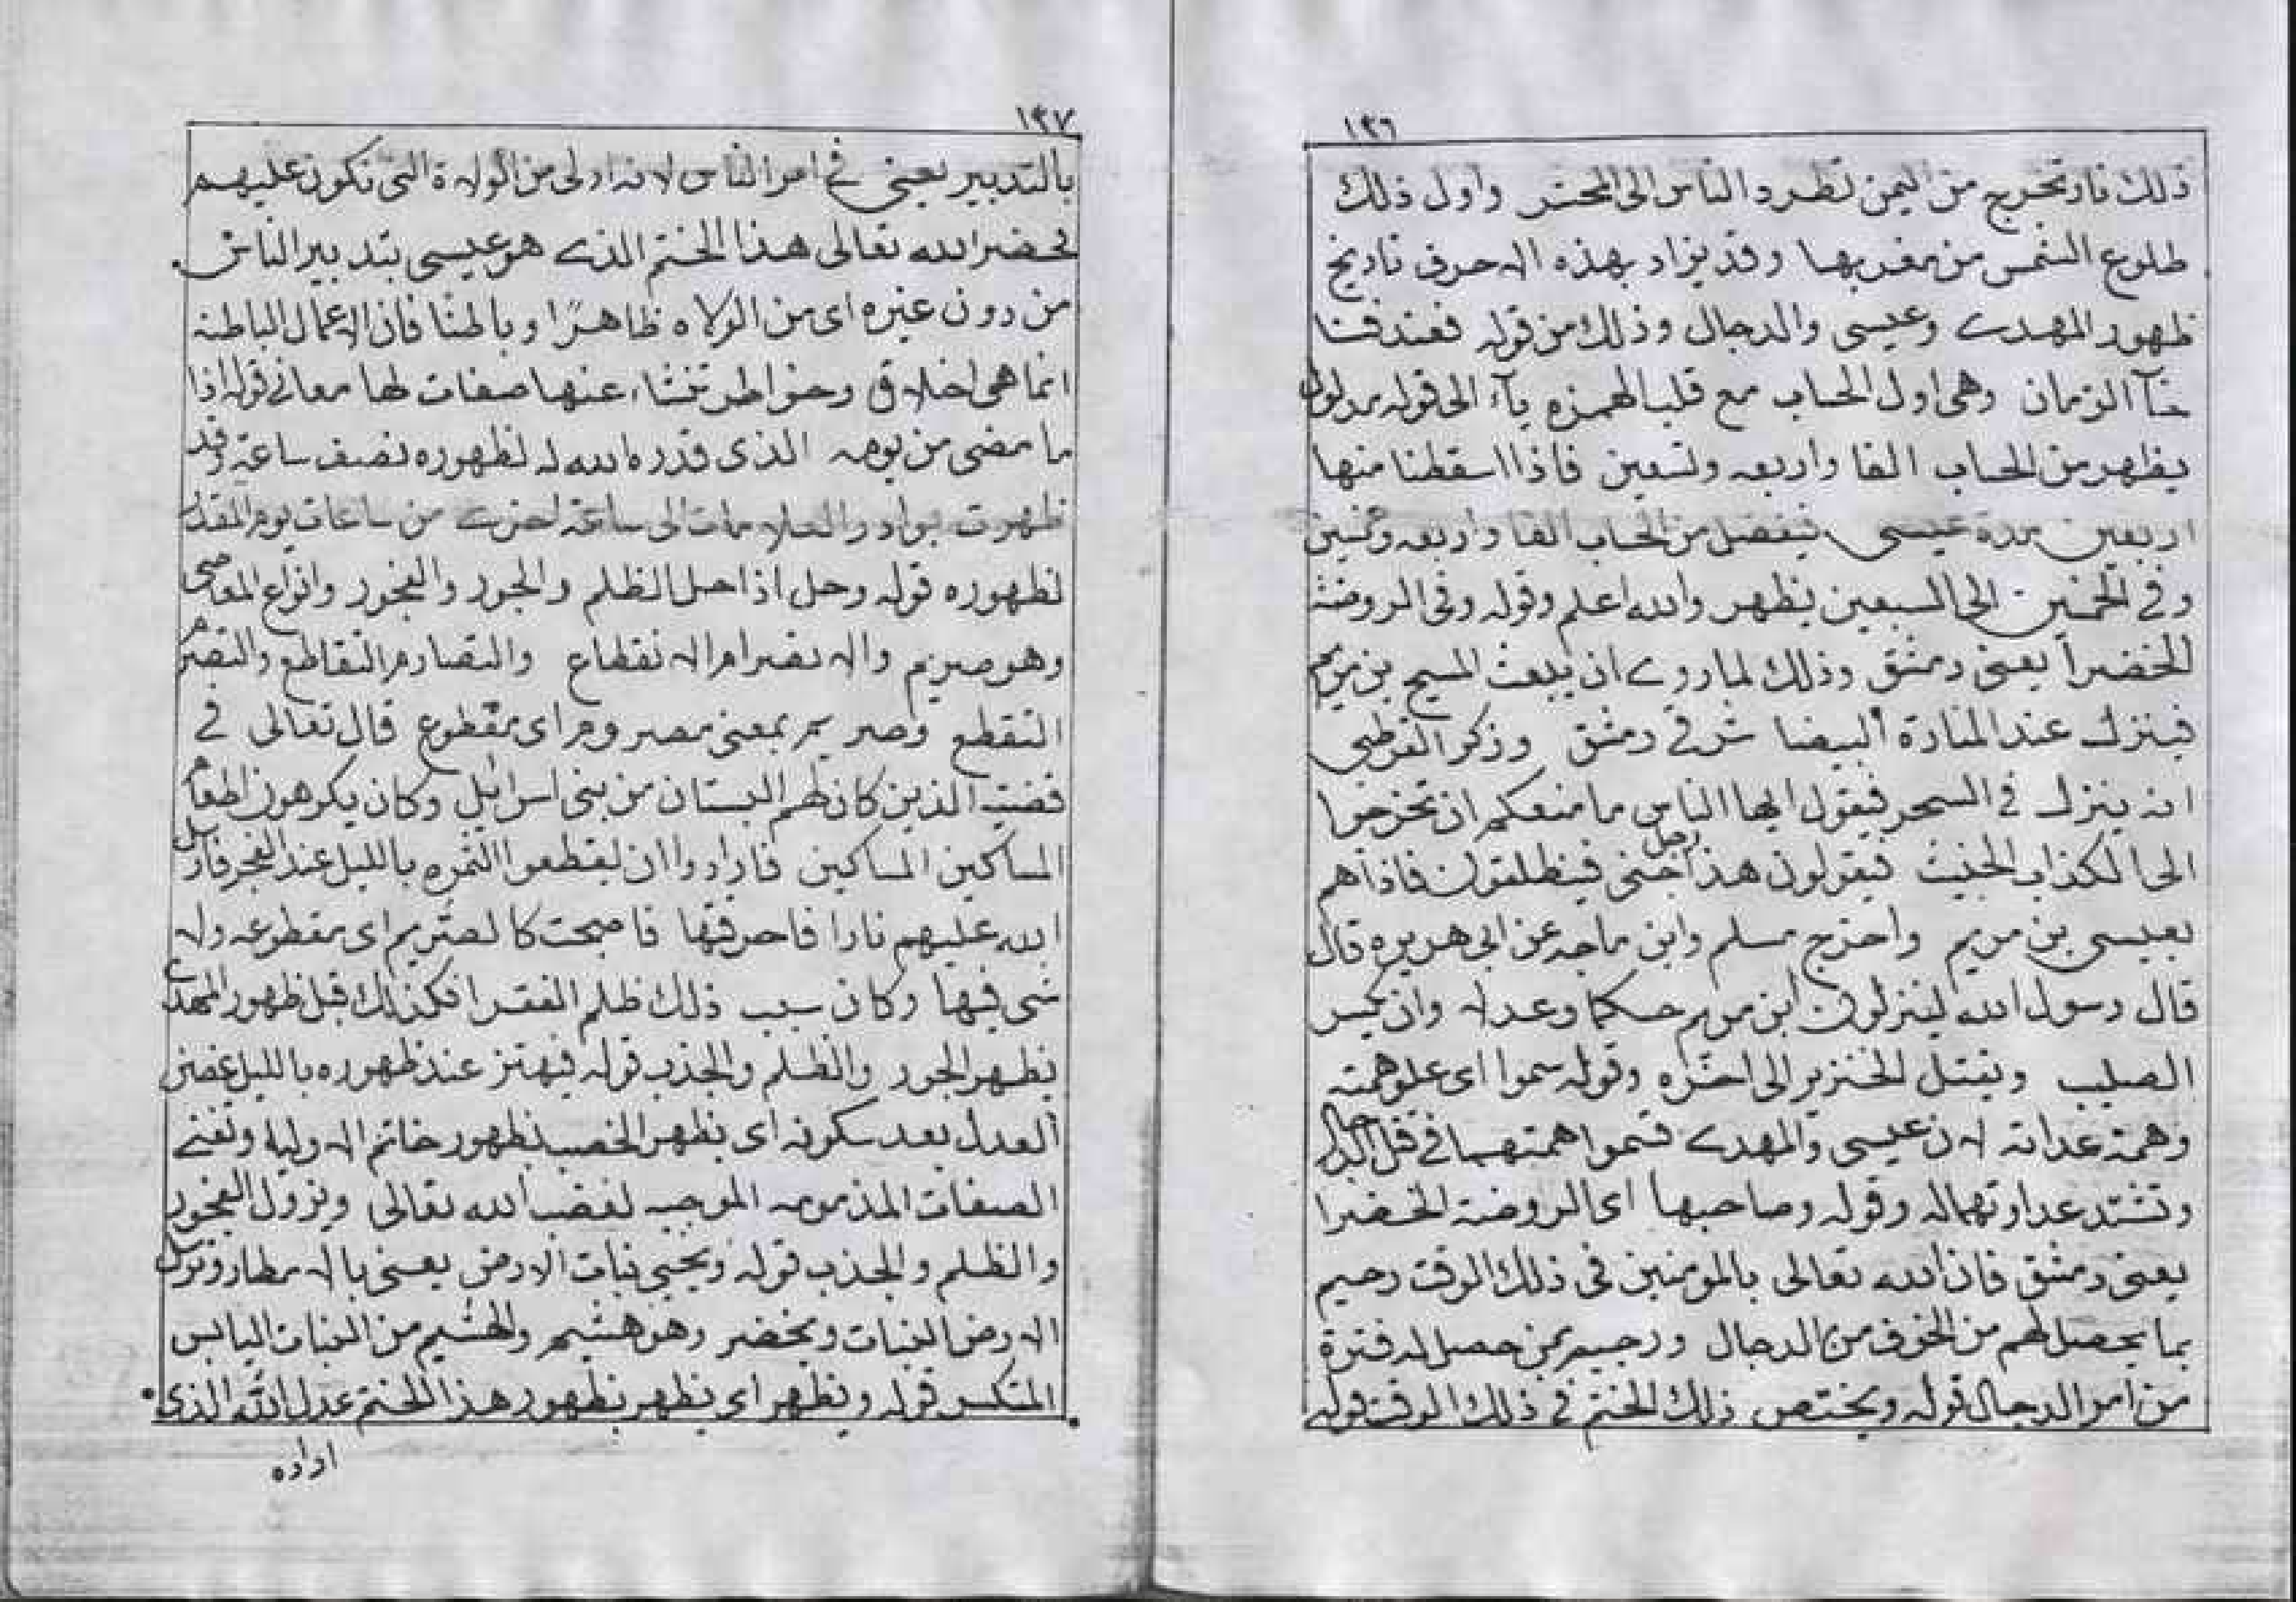 ١٣٦
ذلك نار تخرج من اليمن تطرد الناس الى المحشر واول ذلك
طلوع الشمس من مغربها وقد يزاد بهذه الاحرف تاريخ
ظهور المهدى وعيسى والدجال وذلك من قوله فعند فنا
خآ الزمان وهى اول الحساب مع قلب الهمزه يآء الى قوله مدلول
يظهر من الحساب الفا واربعه وتسعين فاذا اسقطنا منها
اربعين مدة عيسى فيفضل من الحساب الفا واربعه وخمسين
وفي الخمسين الى السبعين يظهر والله اعلم وقوله وفى الروضة
الخضرا يعنى دمشق وذلك لما روى ان يبعث المسيح بن مريم
فينزل عند المنارة البيضا شرقي دمشق وذكر القرطبى
انه ينزل في السحر فيقول ايها الناس ما منعكم ان تخرجوا
الى الكذاب الخبيث فيقولون هذا رجل جنى فينطلقون فاذا هم
بعيسى بن مريم واخرج مسلم وابن ماجه عن ابى هريره قال
قال رسول الله لينزلون ابن مريم حكما وعدلا وان يكسر
الصليب ويقتل الخنزير الى اخره وقوله سموا اى علو همته
وهمة عداته لان عيسى والمهدى قسموا همتهما في قتل الدجال
وتشتد عداوتهما له وقوله وصاحبها اى الروضة الخضرا
يعنى دمشق فان الله تعالى بالمومنين فى ذلك الوقت رحيم
بما يحصل لهم من الخوف من الدجال ورحيم بمن حصل له فترة
من امر الدجال قوله ويختص ذلك الختم في ذلك الوقت قوله
١٣٧
بالتدبير يعنى في امر الناس لانه اولى من الولاة التى تكون عليهم
فحضر الله تعالى هذا الختم الذى هو عيسى بتدبير الناس
من دون غيره اى من الولاه ظاهرًا وباطنا فان الاعمال الباطنة
انما هى اخلاق وخواطر تنشاء عنها صفات لها معانى قوله اذا
ما مضى من يومه الذى قدره الله له لظهوره نصف ساعة وقد
ظهرت بوادر العلامات الى ساعة اخرى من ساعات يوم المقدر
لظهوره قوله وحل اذا حل الظلم والجور والفجور وانواع المعاصى
وهو صريم والانصرام الانقطاع والتصارم التقاطع والتصرم
التقطع وصريم بمعنى مصروم اى مقطوع قال تعالى في
قضية الذين كان لهم البستان من بنى اسرائيل وكان يكرهون اطعام
المساكين المساكين فارادوا ان ليقطعوا الثمره بالليل عند الفجر فارسل
الله عليهم نارا فاحرقتها فاصبحت كالصريم اى مقطوعه ولا
شى فيها وكان سبب ذلك ظلم الفقرا فكذلك قبل ظهور المهدى
يظهر الجور والظلم والجذب قوله فيهتز عند ظهوره بالليل غصن
العدل بعد سكونه اى يظهر الخصب بظهور خاتم الاوليا وتفنى
الصفات المذمومه الموجبه لغضب الله تعالى ويزول الفجور
والظلم والجذب قوله ويحيى نبات الارض يعنى بالامطار وتنزل
الارض النبات ويخضر وهو هشيم والهشيم من النبات اليابس
المتكسر قوله ويظهر اى يظهر بظهور هذا الختم عدل الله الذى
اراده